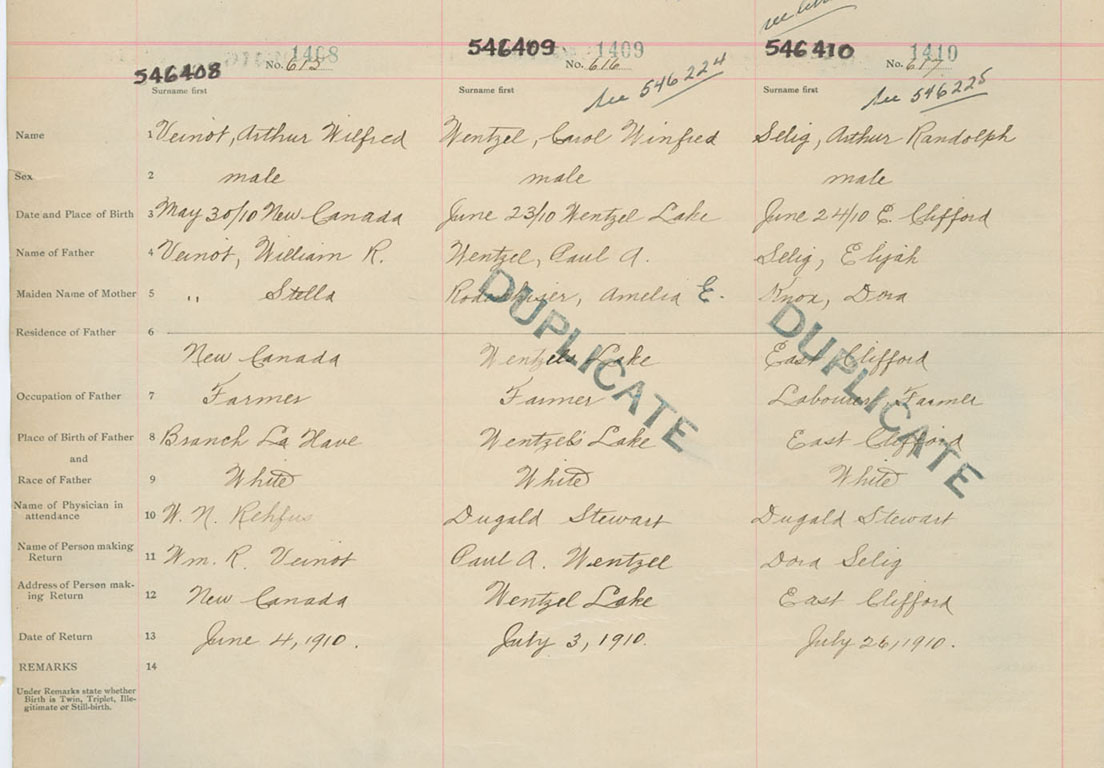 546408 1408 No. 615
546409 1409 No. 616
546410 1410 No. 617
Surname first
Surname first See 546224
Surname first See 546225
Name 1 Veinot, Arthur Wilfred Wentzel, Carol Winfred Selig, Arthur Randolph
Sex 2 male male male
Date and Place of Birth 3 May 30/10 New Canada June 23/10 Wentzel Lake June 24/10 E. Clifford
Name of Father 4 Veinot, William R. Wentzel, Paul A. Selig, Elijah
Maiden Name of Mother 5 " Stella Amelia E. Knox, Dora
Residence of Father 6
New Canada Wentzels Lake East Clifford
Occupation of Father 7 Farmer Farmer Labourer, Farmer
Place of Birth of Father 8 Branch La Have Wentzel's Lake East Clifford
and
Race of Father 9 White White White
Name of Physician in
attendance 10 W. N. Rehfus Dugald Stewart Dugald Stewart
Name of Person making
Return 11 Wm. R. Veinot Paul A. Wentzel Dora Selig
Address of Person mak-
ing Return 12 New Canada Wentzel Lake East Clifford
Date of Return 13 June 4, 1910. July 3, 1910. July 26, 1910.
REMARKS 14
Under Remarks state whether
Birth is Twin, Triplet, Ille-
gitimate or Still-birth.
DUPLICATE
DUPLICATE